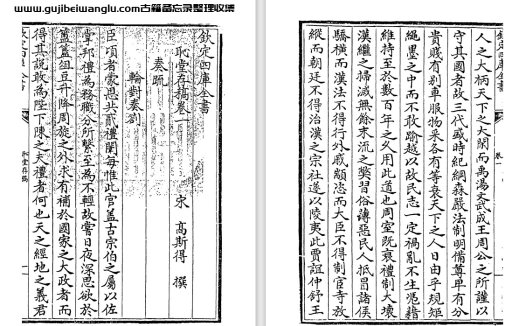 www.gujibeiwanglu.com古籍备忘录整理收集
欽定四庫全書
恥堂存稿卷一
宋 高斯得 撰
奏疏
輪對奏劄
臣頃者蒙恩共貳禮闈每惟此官蓋古宗伯之屬以佐
掌邦禮為務職分所繫至為不輕故嘗日夜深思欲於
簠簋俎豆升降周旋之外求有補於國家之大政者而
得其説敢為陛下陳之夫禮者何也天之經地之義君
恥堂存稿
人之大柄天下之大閑而禹湯文武成王周公之所謹以
守其國者故三代盛時紀綱森嚴法制明備尊卑有分
貴賤有别車服物采各有等衰天下之人日由乎規矩
繩墨之中而不敢踰越以故民志一定禍亂不生憑藉
維持至於數百年之久用此道也周室既衰禮制大壞
漢繼之掃滅無餘末流之獘習俗薄惡民人抵冒諸侯
驕橫而漢法不得行外戚顓恣而大臣不得制宦寺放
縱而朝廷不得治漢之宗社遂以陵夷此賈誼仲舒王
欽定四庫全書